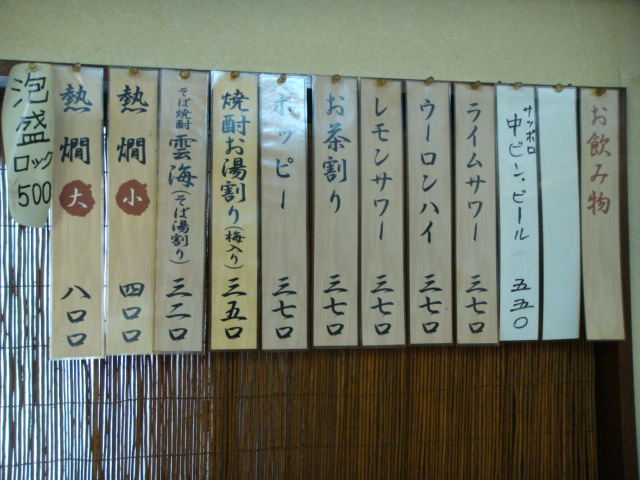 お飲み物
サッポロ
中ビン、ビール 五五〇
ライムサワー 三七〇
ウーロンハイ 三七〇
レモンサワー 三七〇
お茶割り 三七〇
ホッピー 三七〇
焼酎お湯割り(梅入り) 三五〇
そば焼酎 雲海(そば湯割り) 三二〇
熱燗 小 四〇〇
熱燗 大 八〇〇
泡盛ロック 500